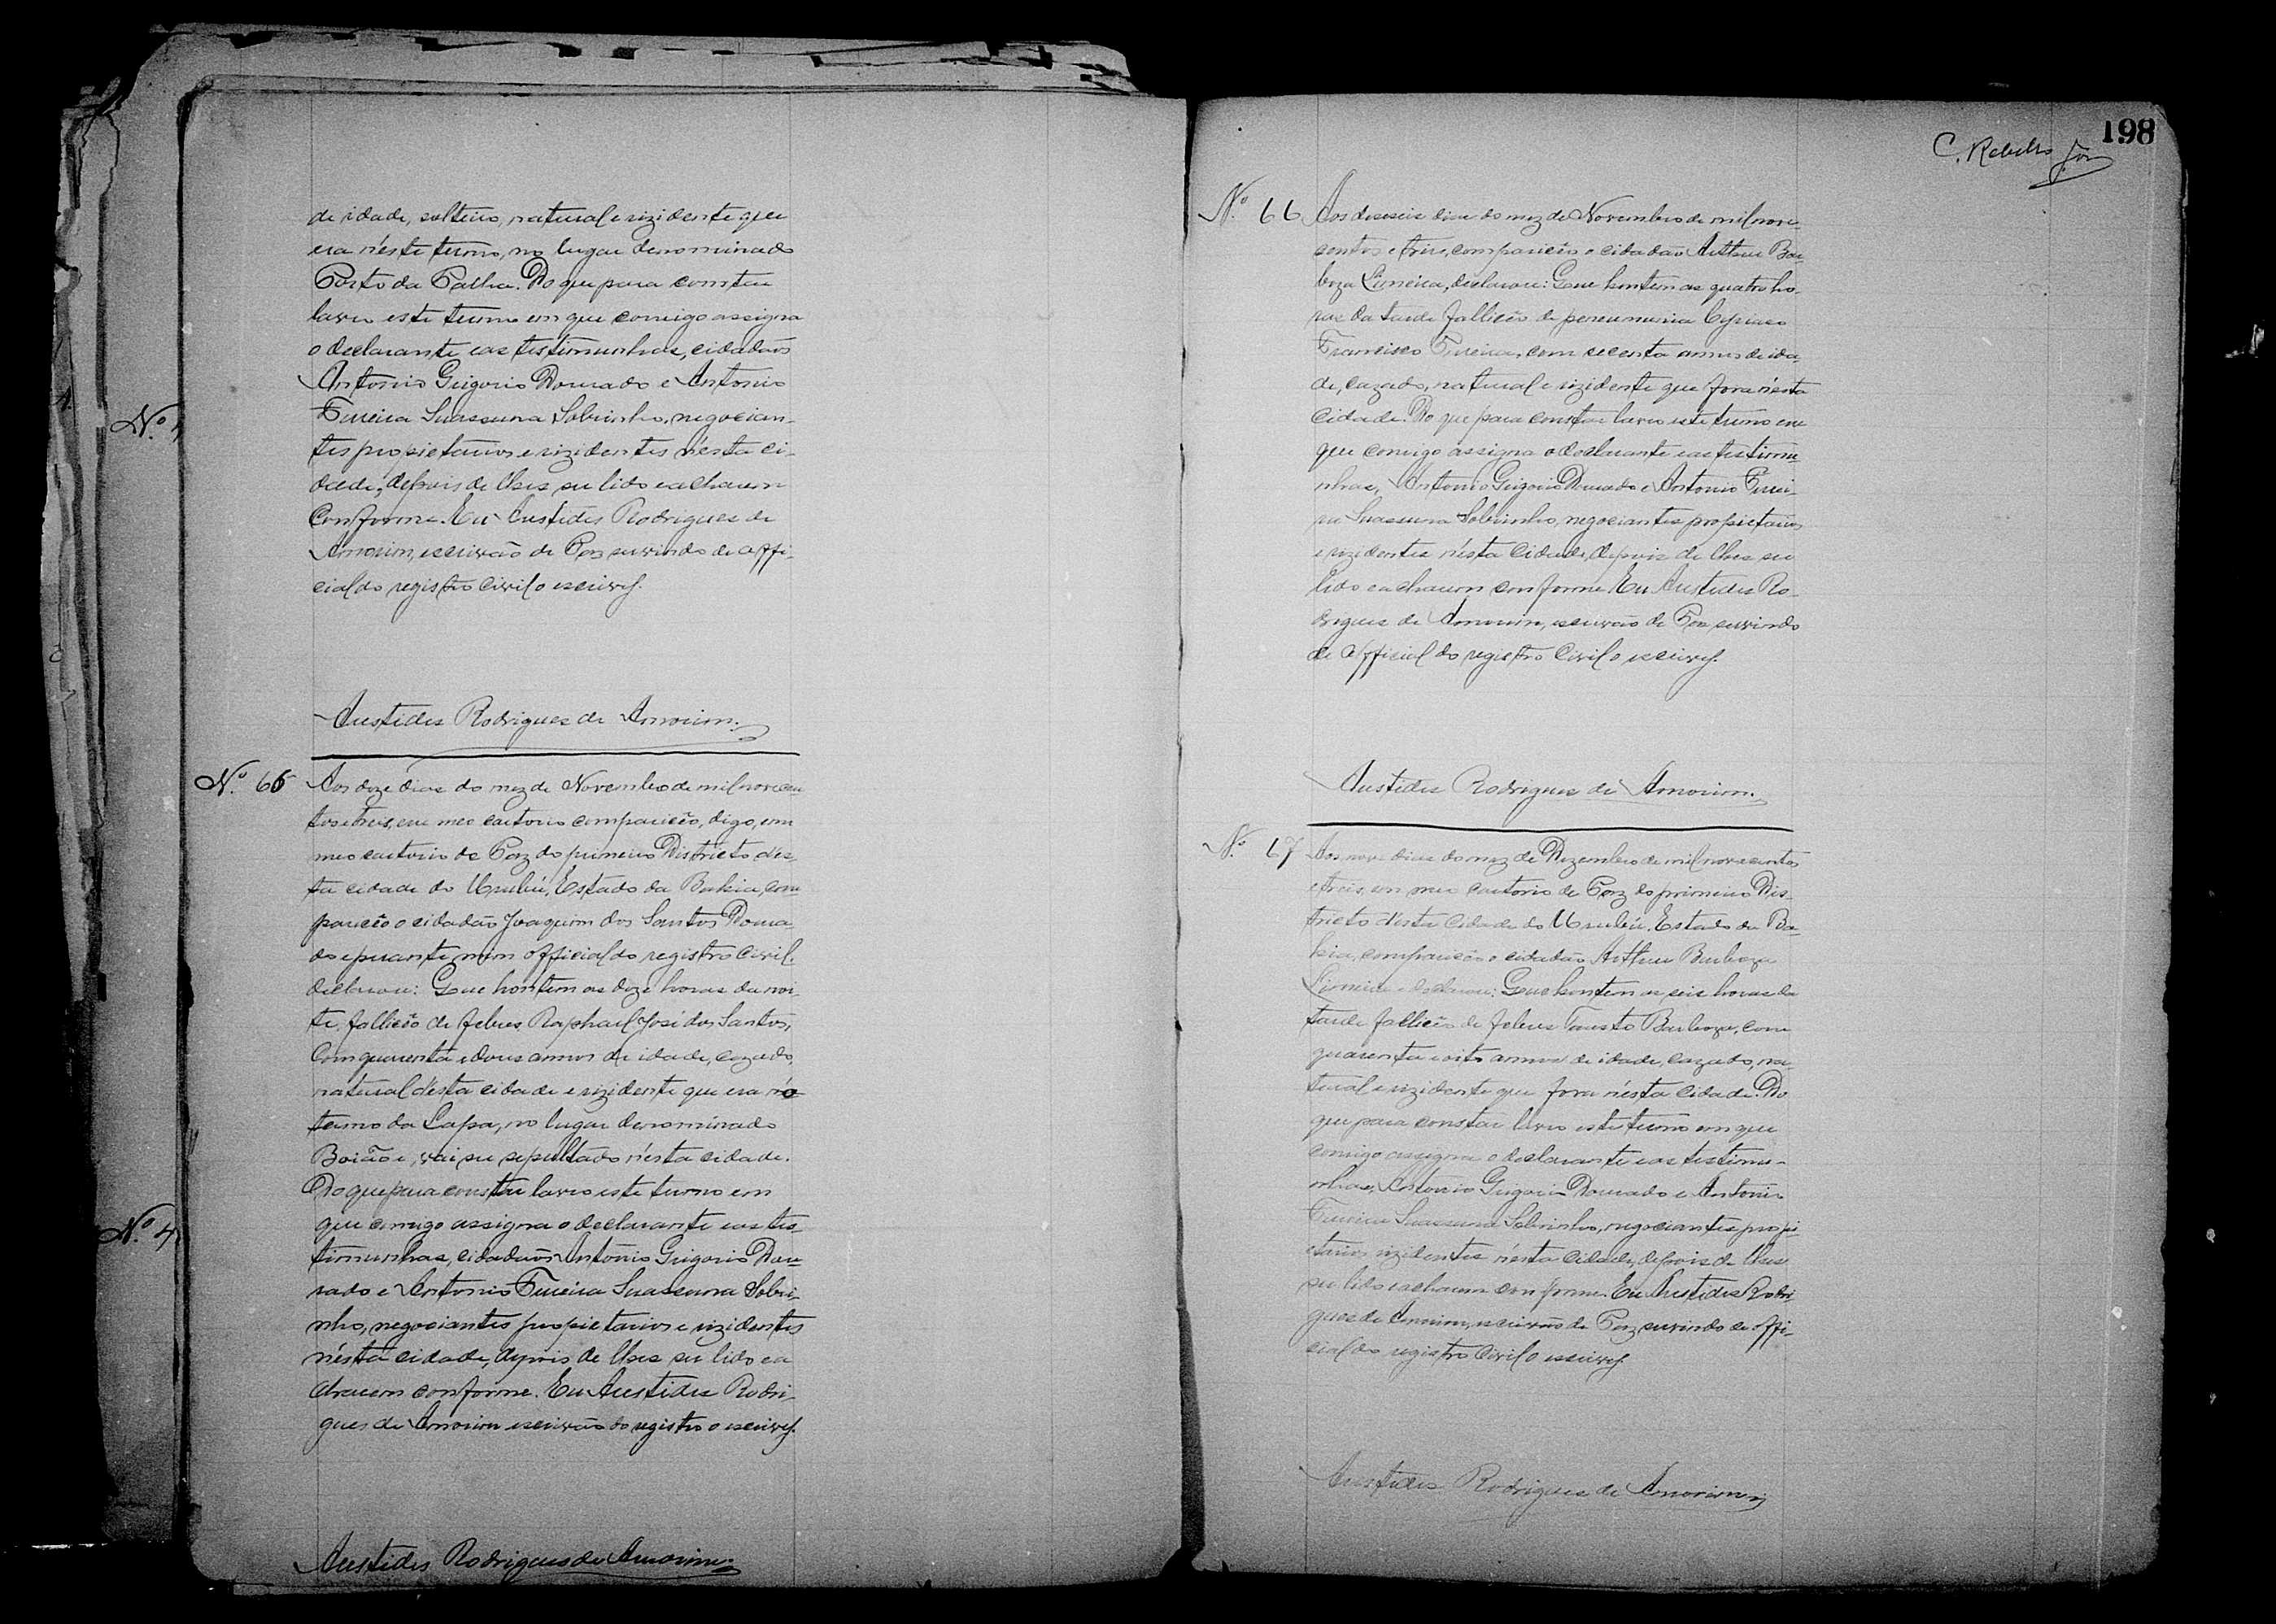 de idade, solteiro, natural e rizidente que
era n'este termo, no lugar denominado
Porto da Palha. Do que para constar
lavro este termo em que comigo assigna
o declarante e as testimunhas, cidadãos
Antonio Grigorio Dourado e Antonio
Ferreira Suassuna Sobrinho, negocian-
tes propietarios e rizidentes n'esta ci-
dade, depois de lhes ser lido e acharem
Conforme. Eu Aristides Rodrigues de
Amorim, escrivão de Paz servindo de offi-
cial do registro Civil o escrevy.
Aristides Rodrigues de Amorim.
Nº 65
Aos doze dias do mez de Novembro de mil novecen
tos e tres, em meo cartorio compariceo, digo, em
meo cartorio de Paz do primeiro Districto d'es-
ta cidade do Urubú, Estado da Bahia, com
pariceo o cidadão Joaquim dos Santos Doura
do e perante mim official do registro Civil.
declarou: Que hontem as doze horas da noi
te, falliceo de febres Raphael José dos Santos,
Com quarenta e dous annos de idade, cazado,
natural d'esta cidade e rizidente que era no
termo da Lapa, no lugar denominado
e, vai ser sepultado n'esta cidade.
Do que para constar lavro este termo em
que comigo assigna o declarante e as tes-
timunhas, cidadãos Antonio Grigorio Dou
rado e Antonio Ferreira Suassuna Sobri-
nho, negociantes propietarios e rizidentes
n'esta cidade, depois de lhes ser lido e a
charem conforme. Eu Aristides Rodri-
gues de Amorim escrivão do registro o escrevy.
Aristides Rodrigues de Amorim.
198
C. Rebello
Nº 66
Aos deseseis dias do mez de Novembro de mil nove-
centos e tres, compariceo o cidadão Arthur Bar
boza Limeira, declarou: Que hontem as quatro ho-
ras da tarde falliceo de peneumunia Cypriano
Francisco Ferreira, com secenta annos de ida-
de, cazado, natural e rizidente que fora n'esta
cidade. Do que para constar lavro este termo em
que comigo assigna o declarante e as testimu-
nhas, Antonio Grigorio Dourado e Antonio Ferrei-
ra Suassuna Sobrinho, negociantes propietarios
e rizidentes n'esta Cidade, depois de lhes ser
lido e acharem conforme. Eu Aristides Ro-
drigues de Amorim, escrivão de Paz servindo
de official do registro Civil o escrevy.
Aristides Rodrigues de Amorim.
Nº 67
Aos nove dias do mez de Dezembro de mil novecentos
e treis, em meo cartorio de Paz do primeiro Dis-
tricto d'esta Cidade do Urubú, Estado da Ba-
hia, compariceo o cidadão Arthur Barboza
Limeira e declarou: Que hontem as seis horas da
tarde falliceo de febres Fausto Barboza, com
quarenta e oito annos de idade, cazado, na-
tural e rizidente que fora n'esta Cidade. Do
que para constar lavro este termo em que
comigo assigna o declarante e as testimu-
nhas, Antonio Grigorio Dourado e Antonio
Ferreira Suassuna Sobrinho, negociantes propi-
etarios rizidentes n'esta Cidade, depois de lhes
ser lido e acharem conforme. Eu Aristides Rodri
gues de Amorim, escrivão de Paz servindo de offi-
cial do registro Civil o escrevy.
Aristides Rodrigues de Amorim